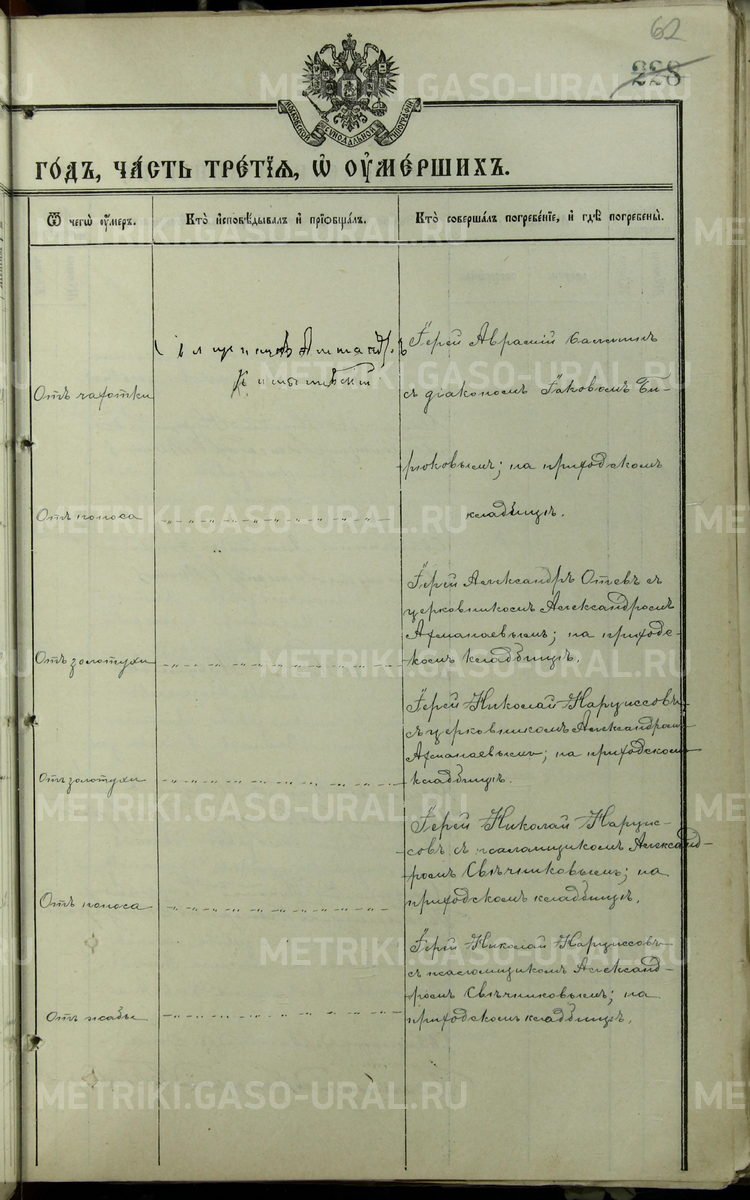 62
228
МОСКОВСКОЙ СѴНОДАЛЬНОЙ ТИПОГРАФІИ
ГО́ДЪ, ЧА́СТЬ ТРЕ́ТІѦ, Ѡ҆ ОУ҆МЕ́РШИХЪ.
Ѿ чегѡ̀ оу҆́меръ.
Кто̀ и҆сповѣ́дывалъ и҆ прїѡбща́лъ.
Кто̀ соверша́лъ погребе́нїе, и҆ гдѣ̀ погребены̀.
Отъ чахотки
Іерей Аврамій
съ діакономъ Іаковомъ Би-
рюковымъ; на приходскомъ
кладбищѣ.
Отъ поноса
Отъ золотухи
Іерей Александръ Отевъ съ
церковникомъ Александромъ
Афанаевымъ; на приходс-
комъ кладбищѣ.
Отъ золотухи
Іерей Николай Наруиссовъ
съ церковникомъ Александромъ
Афанаевымъ; на приходскомъ
кладбищѣ.
Отъ поноса
Іерей Николай Наруис-
совъ съ псаломщикомъ Александ-
ромъ Свѣчниковымъ; на
приходскомъ кладбищѣ.
Отъ жабы
Іерей Николай Наруиссовъ
съ псаломщикомъ Александ-
ромъ Свѣчниковымъ; на
приходскомъ кладбищѣ.
METRIKI.GASO-URAL.RU